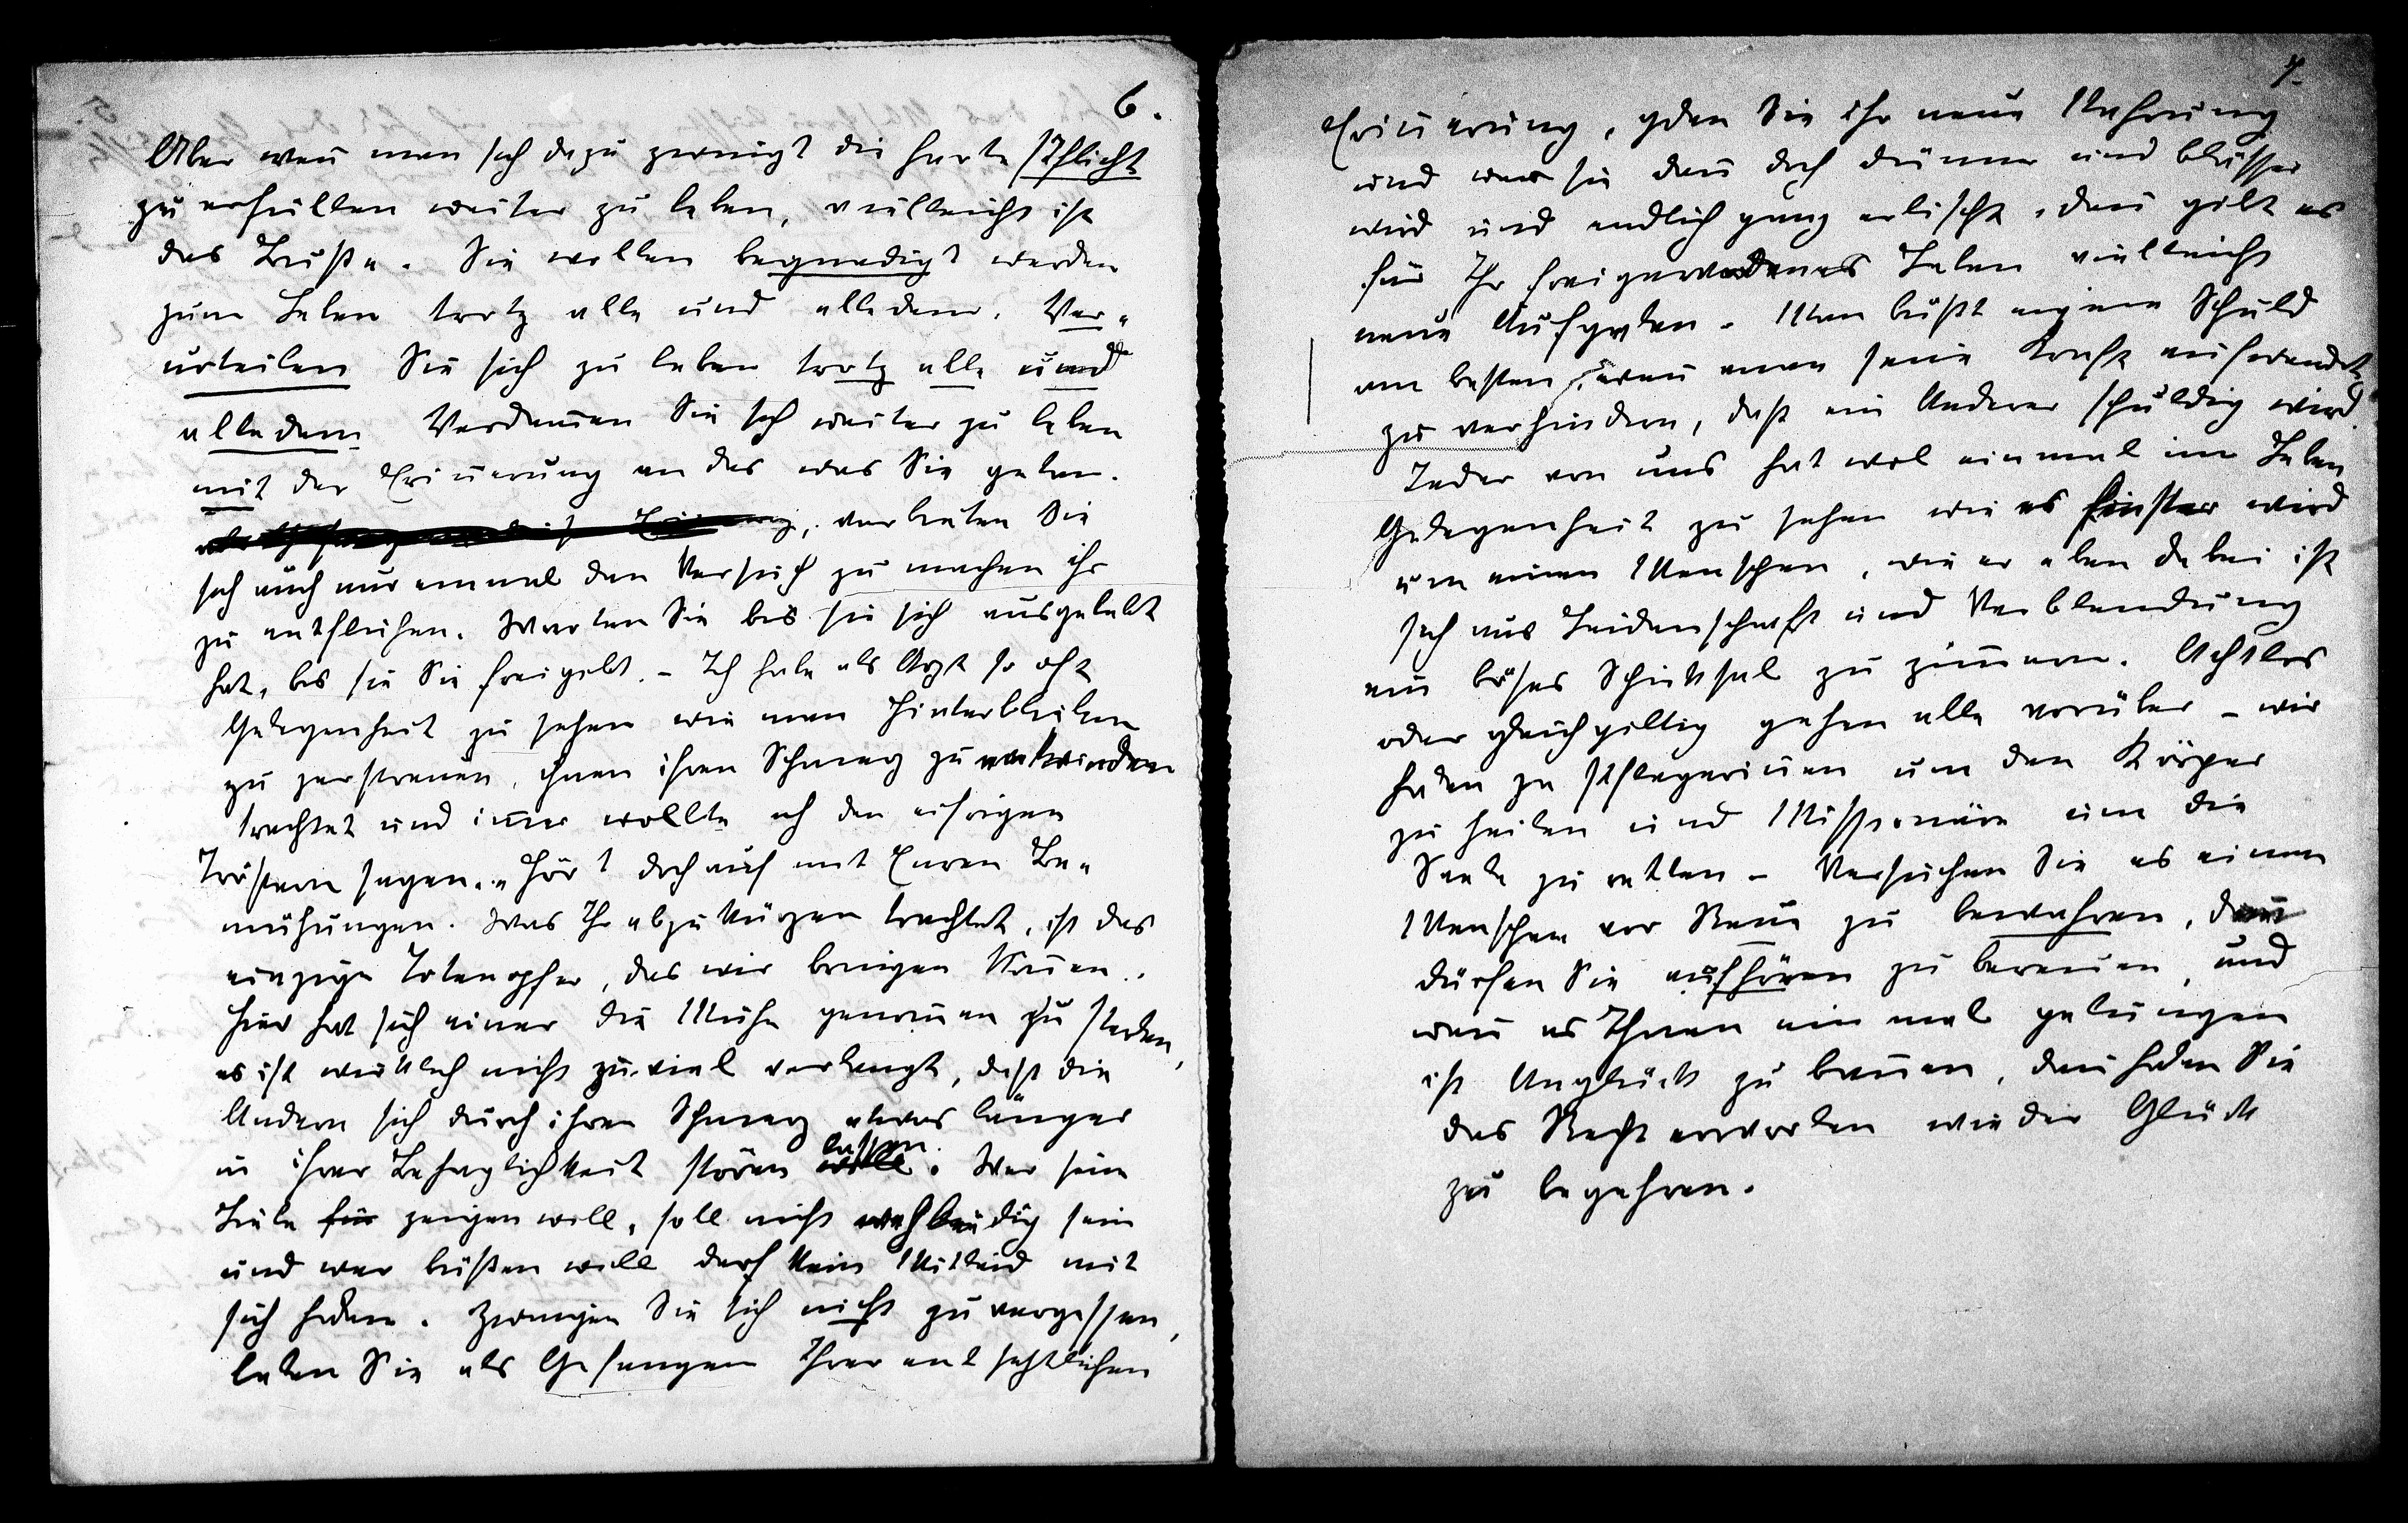 6.
Aber wen̄ man sich dazu zwingt die harte Pflicht
zu erfüllen weiter zu leben, vielleicht ist
das Buße. Sie wollen begnadigt werden
zum Leben trotz alle und alledem. Ver-
urteilen Sie sich zu leben trotz alle und
alledem. Verdam̄en Sie sich weiter zu leben
mit der Erin̄erung an das was Sie getan.
verbieten Sie
sich auch nur einmal den Versuch zu machen ihr
zu entfliehen. Warten Sie bis sie sich ausgelebt
hat, bis sie Sie freigibt. – Ich habe als Arzt so oft
Gelegenheit zu sehen wie man Hinterbliebene
zu zerstreuen, ihnen ihren Schmerz zu entwinden
trachtet und im̄er wollte ich den eifrigen
Tröstern sagen. „Hört doch auf mit Euren Be-
mühungen. Was Ihr abzukürzen trachtet, ist das
einzige Totenopfer, das wir bringen kön̄en.
Hier hat sich einer die Mühe genom̄en zu sterben,
es ist wirklich nicht zuviel verlangt, daß die
Andern sich durch ihren Schmerz etwas länger
in ihrer Behaglichkeit stören lassen. Wer seine
Liebe für zeigen will, soll nicht wehleidig sein
und wer büßen will darf kein Mitleid mit
sich haben. Zwingen Sie sich nicht zu vergessen,
leben Sie als Gefangene Ihrer entsetzlichen
7.
Erin̄erung, geben Sie ihr neue Nahrung
und wen̄ sie dan̄ doch dünner und blässer
wird und endlich ganz erlischt, dan̄ gibt es
für Ihr freigewordenes Leben vielleicht
neue Aufgaben. Man büßt eigene Schuld
am besten, wen̄ man seine Kraft aufwendet
zu verhindern, daß ein Anderer schuldig wird.
Jeder von uns hat wol einmal im Leben
Gelegenheit zu sehen wie es finster wird
um einen Menschen, wie er eben dabei ist
sich aus Leidenschaft und Verblendung
ein böses Schicksal zu zim̄ern. Achtlos
oder gleichgiltig gehen alle vorüber – wir
haben ja Pflegerin̄en um den Körper
zu heilen und Missionäre um die
Seele zu retten – Versuchen Sie es einen
Menschen vor Reue zu bewahren, dan̄
dürfen Sie aufhören zu bereuen, und
wen̄ es Ihnen einmal gelungen
ist Unglück zu ban̄en, dan̄ haben Sie
das Recht erworben wieder Glück
zu begehren.